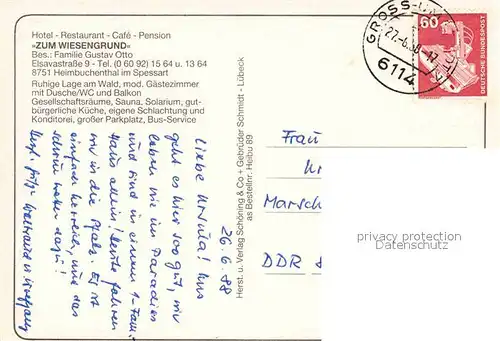 Hotel - Restaurant - Café - Pension
»ZUM WIESENGRUND«
Bes.: Familie Gustav Otto
Elsavastraße 9 - Tel. (0 60 92) 15 64 u. 13 64
8751 Heimbuchenthal im Spessart
Ruhige Lage am Wald, mod. Gästezimmer
mit Dusche/WC und Balkon
Gesellschaftsräume, Sauna, Solarium, gut-
bürgerliche Küche, eigene Schlachtung und
Konditorei, großer Parkplatz, Bus-Service
Herst. u. Verlag Schöning & Co + Gebrüder Schmidt - Lübeck
as Bestellnr. Heibu 89
GROSS-UM
27.-6.88-17
6114
60
DEUTSCHE BUNDESPOST
26.6.88
Liebe Ursula! Uns
geht es hier soo gut, wir
leben wie im Paradies
und sind in einem 1-Fam.
Haus allein! Heute fahren
wir in die Pfalz. Es ist
einfach herrlich, und das
schöne Wetter dazu!
Frau
Marsch
DDR
privacy protection
Datenschutz